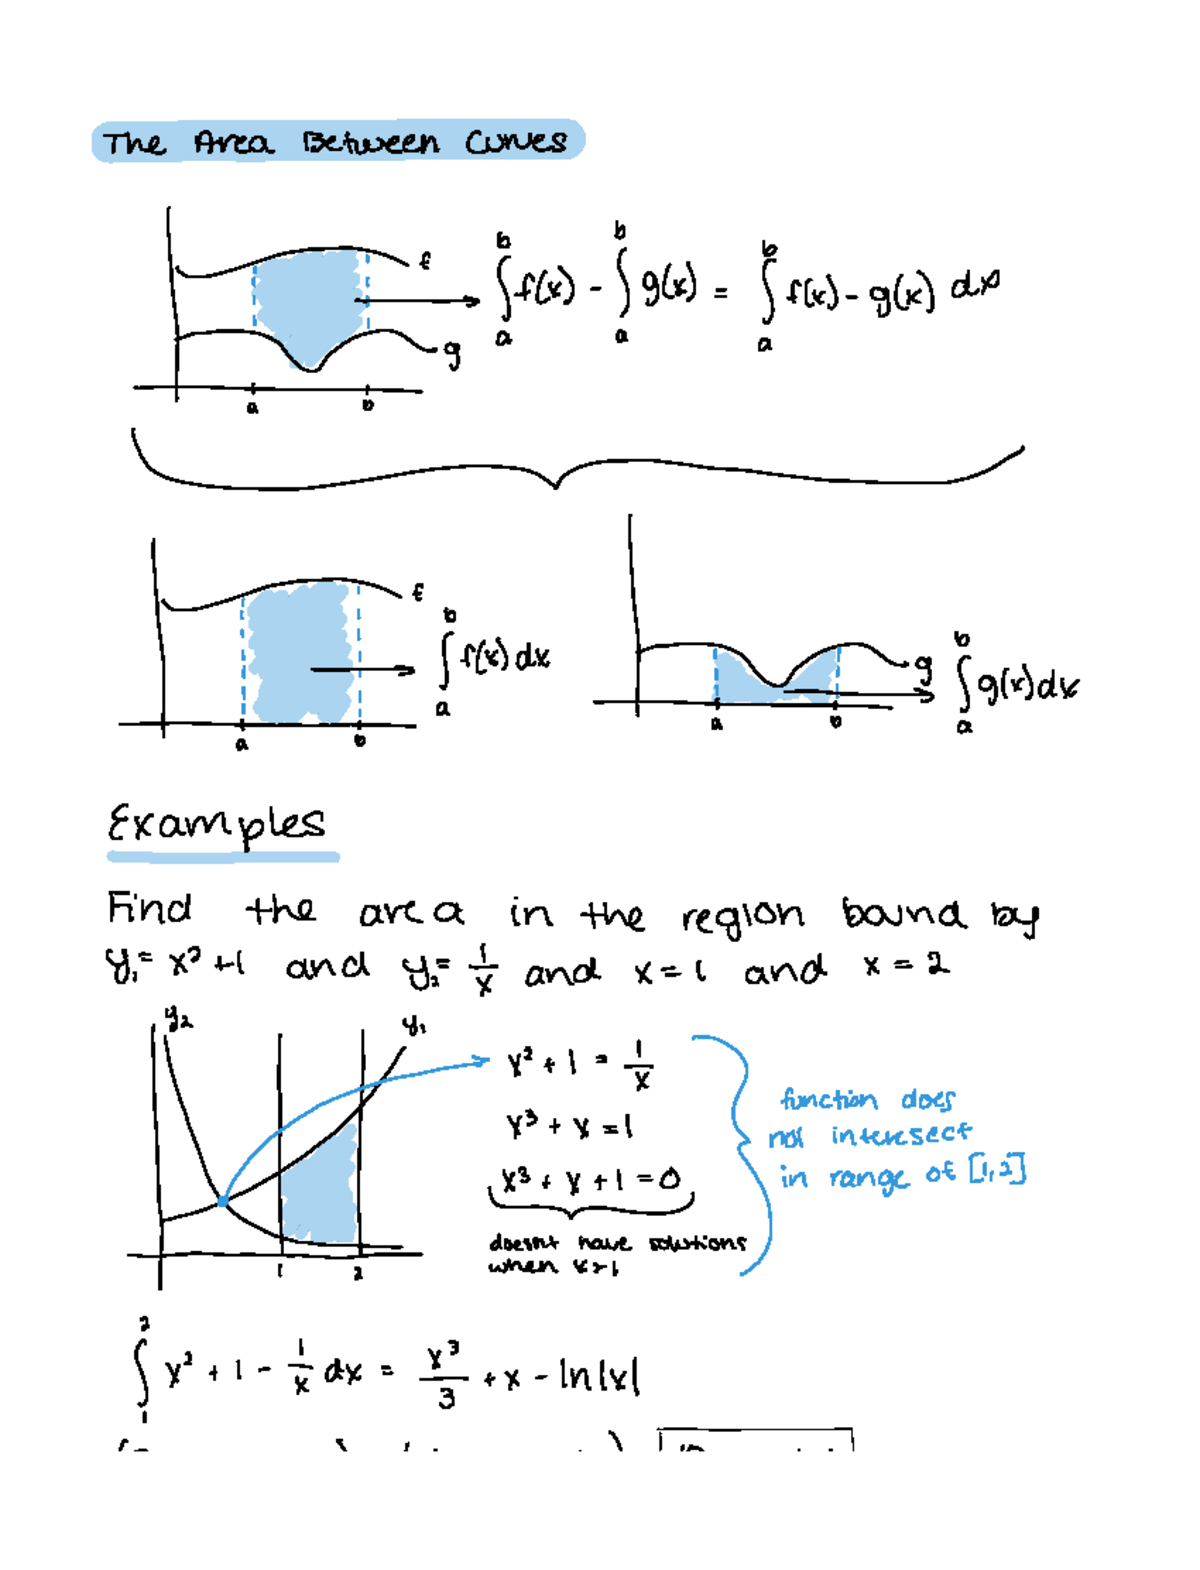 The Area Between Curves
f
∫ₐᵇ f(x) - ∫ₐᵇ g(x) = ∫ₐᵇ f(x) - g(x) dx
g
a b
f
∫ₐᵇ f(x) dx
a b
g
∫ₐᵇ g(x) dx
a b
Examples
Find the area in the region bound by
y₁ = x² + 1 and y₂ = 1/x and x = 1 and x = 2
y₂ y₁
x² + 1 = 1/x
x³ + x = 1
x³ + x + 1 = 0
doesnt have solutions
when x>1
function does
not intersect
in range of [1,2]
1 2
∫₁² x² + 1 - 1/x dx = x³/3 + x - ln|x|